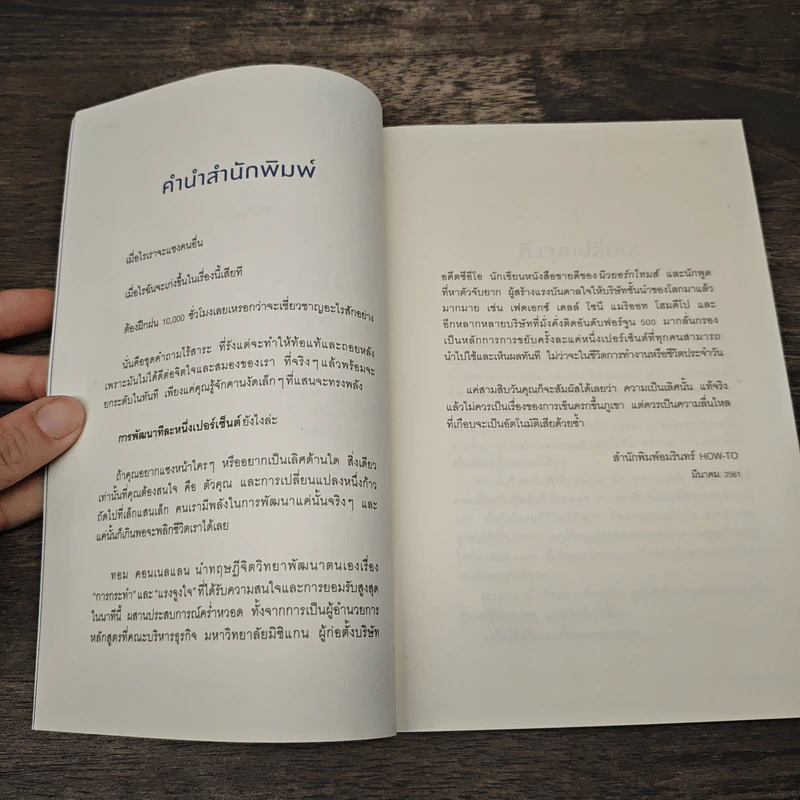 คำนำสำนักพิมพ์
เมื่อไรเราจะแซงคนอื่น
เมื่อไรฉันจะเก่งขึ้นในเรื่องนี้เสียที
ต้องฝึกฝน 10,000 ชั่วโมงเลยเหรอกว่าจะเชี่ยวชาญอะไรสักอย่าง
นั่นคือชุดคำถามไร้สาระ ที่รังแต่จะทำให้ท้อแท้และถอยหลัง
เพราะมันไม่ได้ดีต่อจิตใจและสมองของเรา ที่จริงๆ แล้วพร้อมจะ
ยกระดับในทันที เพียงแค่คุณรู้จักคานงัดเล็กๆ ที่แสนจะทรงพลัง
การพัฒนาทีละหนึ่งเปอร์เซ็นต์ ยังไงล่ะ
ถ้าคุณอยากแซงหน้าใครๆ หรืออยากเป็นเลิศด้านใด สิ่งเดียว
เท่านั้นที่คุณต้องสนใจ คือ ตัวคุณ และการเปลี่ยนแปลงหนึ่งก้าว
ถัดไปที่เล็กแสนเล็ก คนเรามีพลังในการพัฒนาแค่นั้นจริงๆ และ
แค่นั้นก็เกินพอจะพลิกชีวิตเราได้เลย
ทอม คอนเนลแลน นำทฤษฎีจิตวิทยาพัฒนาตนเองเรื่อง
"การกระทำ" และ "แรงจูงใจ" ที่ได้รับความสนใจและการยอมรับสูงสุด
ในนาทีนี้ ผสานประสบการณ์คร่ำหวอด ทั้งจากการเป็นผู้อำนวยการ
หลักสูตรที่คณะบริหารธุรกิจ มหาวิทยาลัยมิชิแกน ผู้ก่อตั้งบริษัท
อดีตซีอีโอ นักเขียนหนังสือขายดีของนิวยอร์กไทมส์ และนักพูด
ที่หาตัวจับยาก ผู้สร้างแรงบันดาลใจให้บริษัทชั้นนำของโลกมาแล้ว
มากมาย เช่น เฟดเอกซ์ เดลล์ โซนี่ แมริออท โฮมดีโป และ
อีกหลากหลายบริษัทที่มั่งคั่งติดอันดับฟอร์จูน 500 มากลั่นกรอง
เป็นหลักการการขยับครั้งละแค่หนึ่งเปอร์เซ็นต์ที่ทุกคนสามารถ
นำไปใช้และเห็นผลทันที ไม่ว่าจะในชีวิตการทำงานหรือชีวิตประจำวัน
แค่สามสิบวันคุณก็จะสัมผัสได้เลยว่า ความเป็นเลิศนั้น แท้จริง
แล้วไม่ควรเป็นเรื่องของการเข็นครกขึ้นภูเขา แต่ควรเป็นความลื่นไหล
ที่เกือบจะเป็นอัตโนมัติเสียด้วยซ้ำ
สำนักพิมพ์อมรินทร์ HOW-TO
มีนาคม 2561